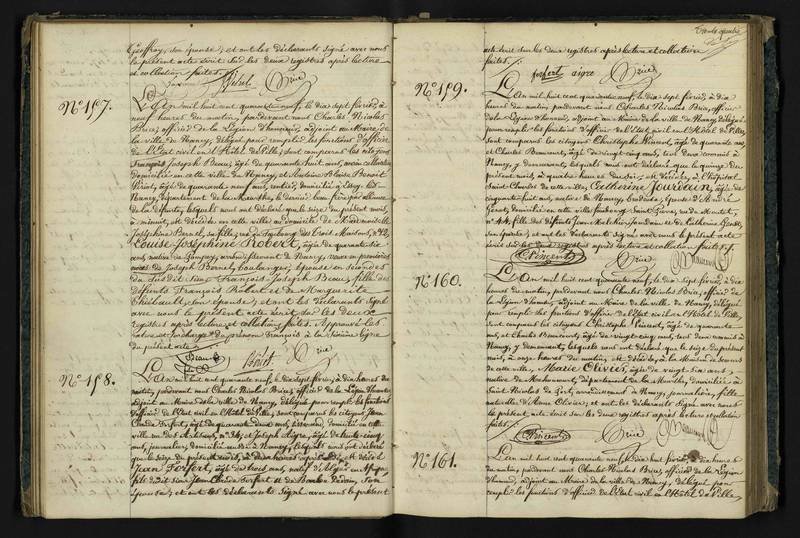 Geoffroy, son épouse, et ont les déclarants signé avec nous
le présent acte écrit sur les deux registres après lecture
et collation faites.
Brice
N° 157.
L'An mil huit cent quarante neuf, le dix sept février, à
neuf heures du matin, pardevant nous Charles Nicolas
Brice, officier de la Légion d'honneur, adjoint au Maire de
la ville de Nancy, délégué pour remplir les fonctions d'officier
de l'État civil en l'Hôtel de Ville, sont comparus les citoyens
François Joseph Beau, âgé de quarante huit ans,
domicilié en cette ville de Nancy, et Antoine Blaise Benoit
âgé de quarante neuf ans, rentier, domicilié à
Nancy, département de la Meurthe, le dernier beau frère par alliance
de la défunte, lesquels nous ont déclaré que le seize du présent mois,
à minuit, est décédée en cette ville au domicile de
Joséphine Bernel, sa fille, rue du Faubourg des Trois Maisons, n°
Louise Joséphine Robert, âgée de quarante six
ans, native de Pompey, arrondissement de Nancy, veuve en premières
noces de Joseph Bernel, boulanger; épouse en secondes
du susdit sieur François Joseph Beau, fille des
défunts François Robert et de Marguerite
Thiébault, son épouse; et ont les déclarants signé
avec nous le présent acte écrit sur les deux
registres après lecture et collation faites. Approuvé les
rature et surcharge du prénom François à la sixième ligne
du présent acte.
Beau
Benoit
Brice
N° 158.
L'An mil huit cent quarante neuf, le dix sept février, à dix heures du
matin, pardevant nous Charles Nicolas Brice, officier de la Légion d'honneur,
adjoint au Maire de la ville de Nancy, délégué pour remplir les fonctions
d'officier de l'État civil en l'Hôtel de Ville, sont comparus les citoyens Jean
Claude Forfert, âgé de quarante deux ans, domicilié en cette
ville rue des Artisans, n° et Joseph Aigre, âgé de trente cinq
ans, journalier, domicilié aussi à Nancy, lesquels nous ont déclaré
que le seize du présent mois, à heures après midi, est décédé
Jean Forfert, âgé de trois ans, natif d'Alger en Afrique
fils dudit sieur Jean Claude Forfert et de Barbe son
épouse; et ont les déclarants signé avec nous le présent
Trente quatre
acte écrit sur les deux registres après lecture et collation
faites.
forfert aigre Brice
N° 159.
L'An mil huit cent quarante neuf, le dix sept février, à dix
heures du matin, pardevant nous Charles Nicolas Brice, officier
de la Légion d'honneur, adjoint au Maire de la ville de Nancy, délégué
pour remplir les fonctions d'officier de l'État civil en l'Hôtel de Ville,
sont comparus les citoyens Christophe Pincent, âgé de quarante ans,
et Charles Bonnard, âgé de vingt-cinq ans, tous deux commis à
Nancy, y demeurant, lesquels nous ont déclaré que le quinze du
présent mois, à quatre heures du soir, est décédée, à l'hôpital
Saint Charles de cette ville, Catherine Jourdain, âgée de
cinquante huit ans, native de Nancy, épouse d'André
domicilié en cette ville, faubourg Saint Pierre, rue de
n° 44, fille des défunts Jean Jourdain et de Catherine
son épouse; et ont les déclarants signé avec nous le présent acte
écrit sur les deux registres après lecture et collation faites.
Pincent Brice
N° 160.
L'An mil huit cent quarante neuf, le dix sept février, à dix
heures du matin, pardevant nous Charles Nicolas Brice, officier de
la Légion d'honneur, adjoint au Maire de la ville de Nancy, délégué
pour remplir les fonctions d'officier de l'État civil en l'Hôtel de Ville,
sont comparus les citoyens Christophe Pincent, âgé de quarante
ans, et Charles Bonnard, âgé de vingt-cinq ans, tous deux commis à
Nancy, y demeurant, lesquels nous ont déclaré que le seize du présent
mois, à onze heures du matin, est décédée, à la Maison de secours
de cette ville, Marie Olivier, âgée de vingt six ans,
native de département de la Meurthe, domiciliée à
Saint Nicolas de Port, arrondissement de Nancy, journalière, fille
naturelle d'Anne Olivier; et ont les déclarants signé avec nous
le présent acte écrit sur les deux registres après lecture et collation
faites.
Pincent Brice
N° 161.
L'An mil huit cent quarante neuf, le dix huit février, à dix heures
du matin, pardevant nous Charles Nicolas Brice, officier de la Légion
d'honneur, adjoint au Maire de la ville de Nancy, délégué pour
remplir les fonctions d'officier de l'État civil en l'Hôtel de Ville